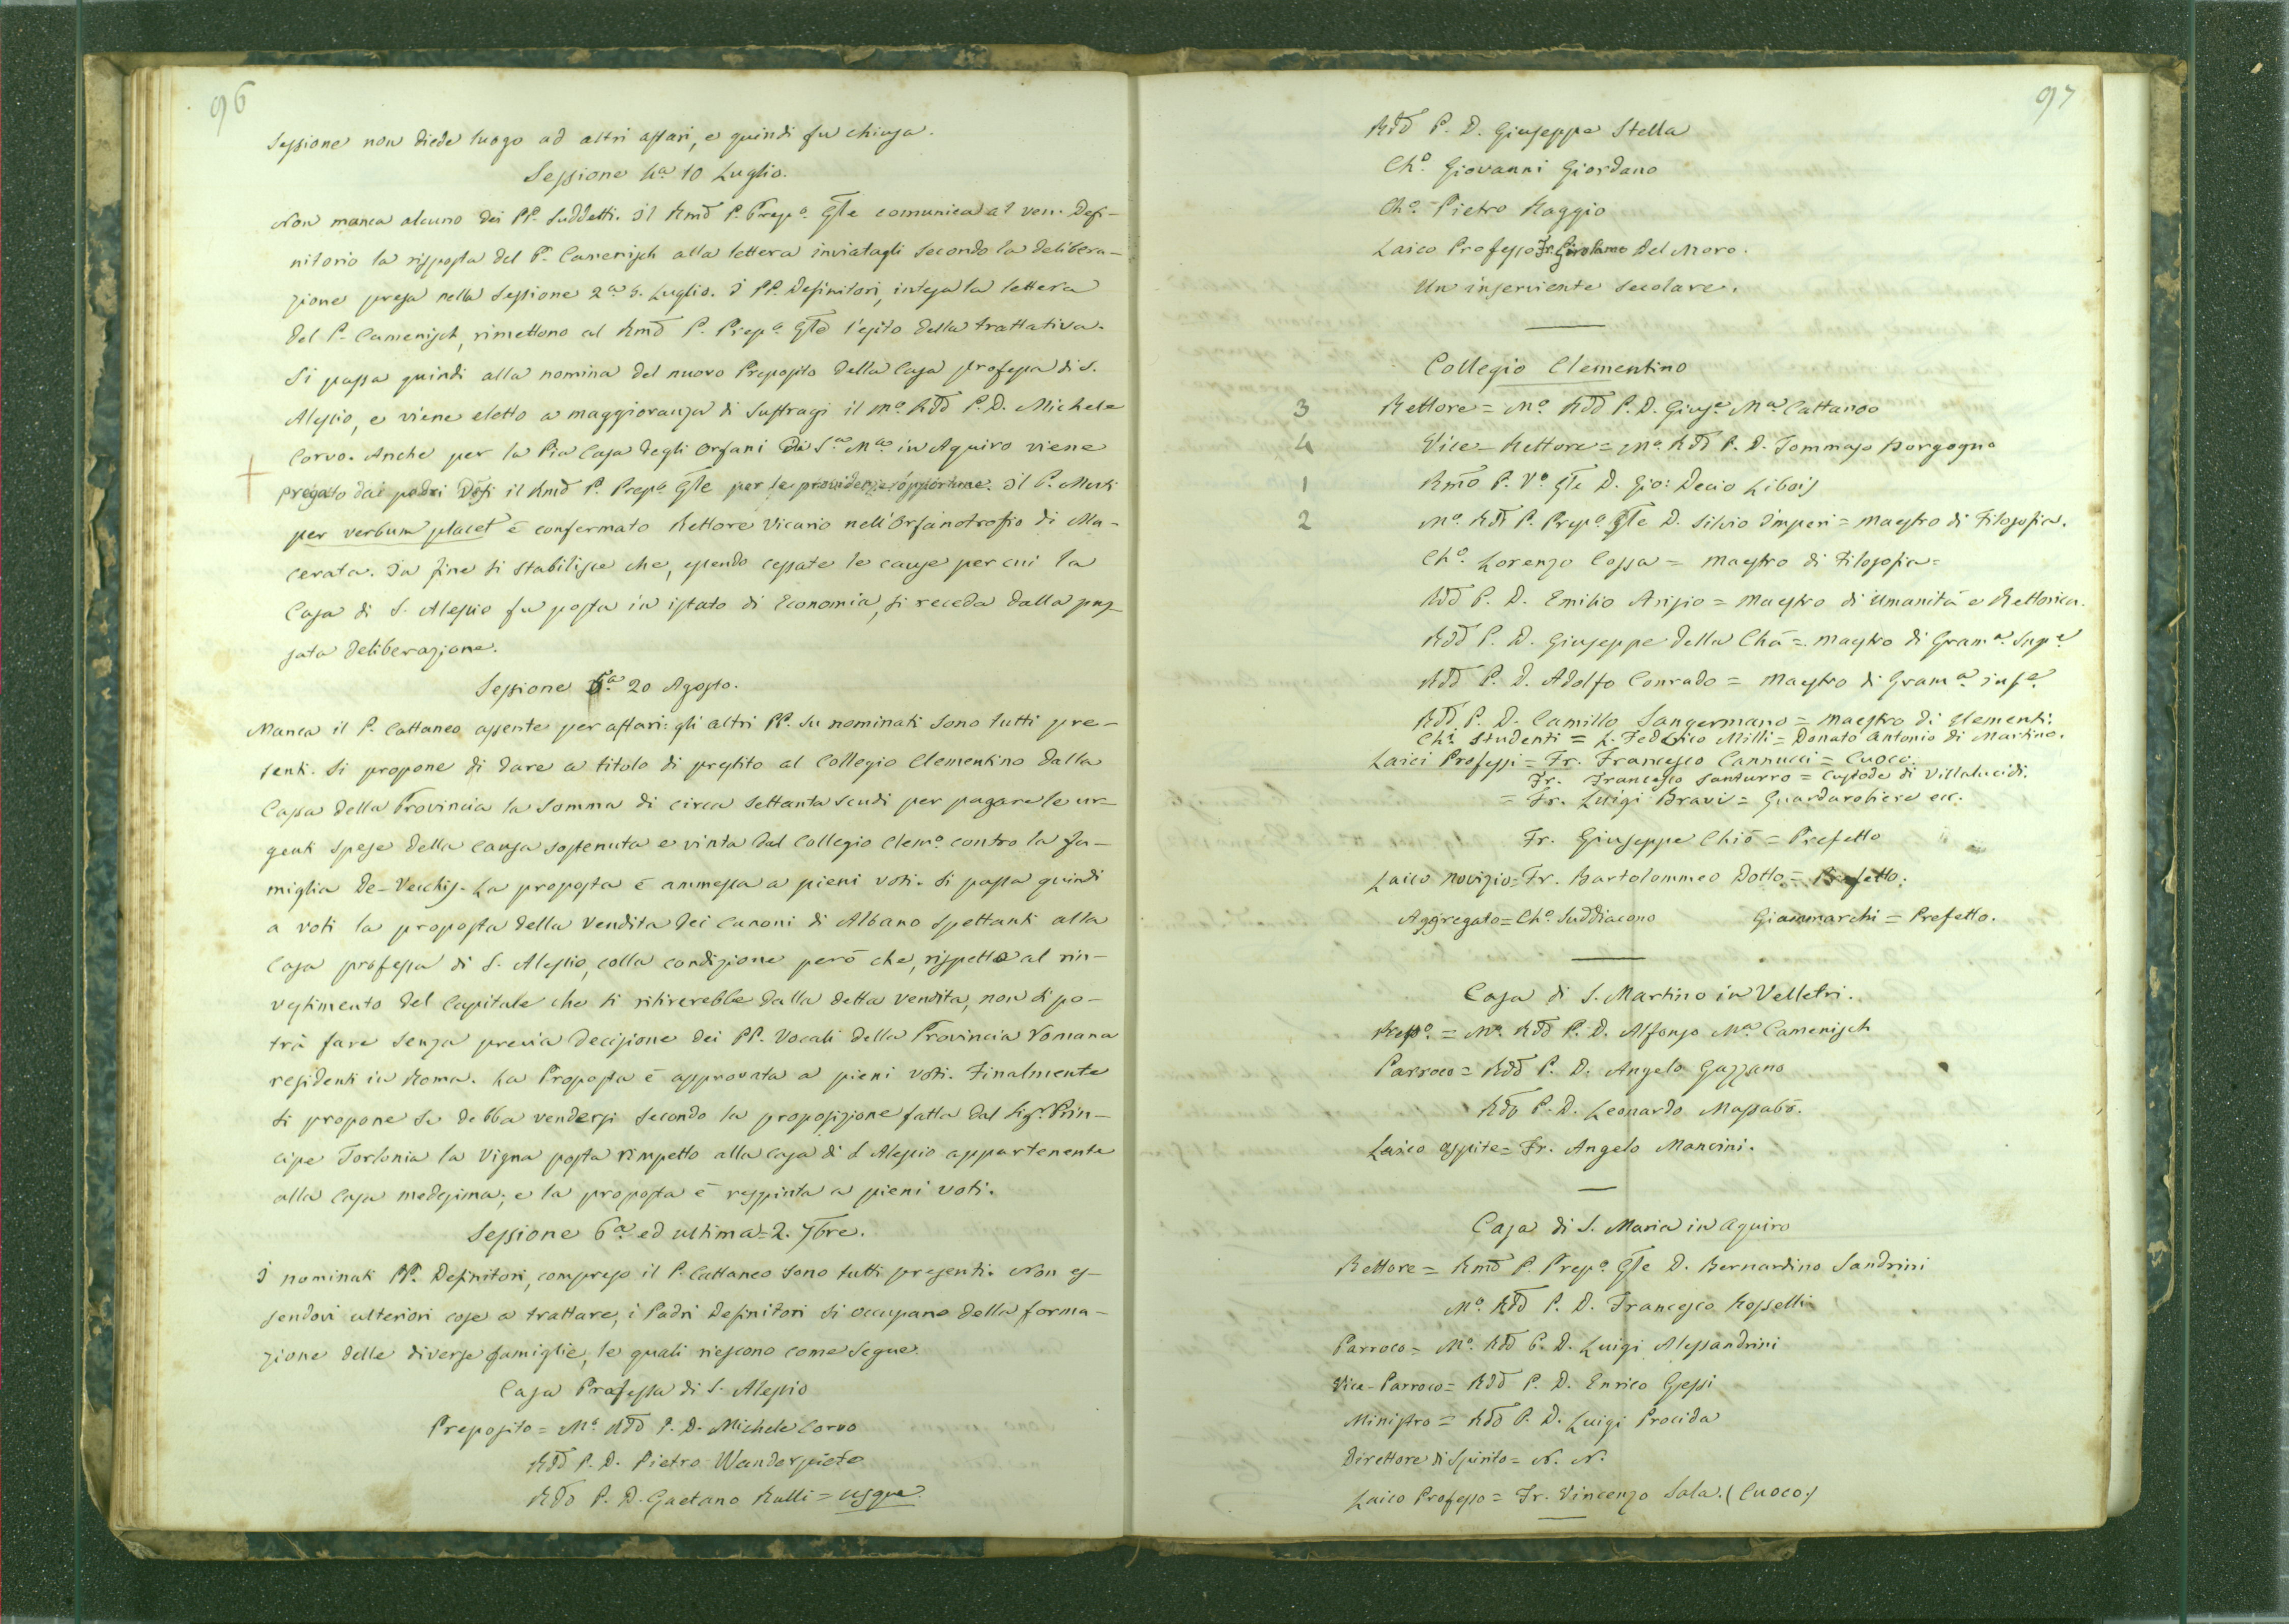 96
Sessione non diede luogo ad altri affari, e quindi fu chiusa.
Sessione 4a 10 Luglio.
Non manca alcuno dei PP. Suddetti. Il Rmo P. Prepo Gle comunica al ven. Defi-
nitorio la risposta del P. Camenisch alla lettera inviatagli secondo la delibera-
zione presa nella Sessione 2a 5. Luglio. I PP. Definitori, intesa la lettera
del P. Camenisch, rimettono al Rmo P. Prepo Gle l'esito della trattativa.
Si passa quindi alla nomina del nuovo Preposito della Casa professa di S.
Alessio, e viene eletto a maggioranza di suffragi il Mo Rdo P. D. Michele
Corvo. Anche per la Pia Casa degli Orfani di Sa Ma in Aquiro viene
pregato dai padri Defi il Rmo P. Prepo Gle per le providenze opportune. Il P. Muti
per verbum placet è confermato Rettore Vicario nell'Orfanotrofio di Ma-
cerata. In fine si stabilisce che, essendo cessate le cause per cui la
Casa di S. Alessio fu posta in istato di Economia, si receda dalla pas-
sata deliberazione.
Sessione 5a 20 Agosto.
Manca il P. Cattaneo assente per affari: gli altri PP. su nominati sono tutti pre-
senti. Si propone di dare a titolo di prestito al Collegio Clementino dalla
Cassa della Provincia la somma di circa settanta scudi per pagare le ur-
genti spese della causa sostenuta e vinta dal Collegio Clemo contro la fa-
miglia De-Vecchis. La proposta è ammessa a pieni voti. Si passa quindi
a voti la proposta della vendita dei canoni di Albano spettanti alla
Casa professa di S. Alessio, colla condizione però che, rispetto al rin-
vestimento del Capitale che si ritirerebbe dalla detta vendita, non si po-
trà fare senza previa decisione dei PP. Vocali della Provincia Romana
residenti in Roma. La Proposta è approvata a pieni voti. Finalmente
si propone se debba vendersi secondo la proposizione fatta dal Sigr Prin-
cipe Torlonia la Vigna posta rimpetto alla casa di S. Alessio appartenente
alla Casa medesima; e la proposta è respinta a pieni voti.
Sessione 6a ed ultima = 2. 7bre.
I nominati PP. Definitori, compreso il P. Cattaneo sono tutti presenti. Non es-
sendovi ulteriori cose a trattare, i Padri Definitori si occupano della forma-
zione delle diverse famiglie, le quali riescono come segue.
Casa Professa di S. Alessio
Preposito = Mo Rdo P. D. Michele Corvo
Rdo P. D. Pietro Wanderpiete
Rdo P. D. Gaetano Rulli = usque
97
Rdo P. D. Giuseppe Stella
Cho. Giovanni Giordano
Cho. Pietro Raggio
Laico Professo Fr. Girolamo Del Moro.
Un inserviente secolare.
Collegio Clementino
3 Rettore = Mo Rdo P. D. Giuse Ma Cattaneo
4 Vice-Rettore = Mo. Rdo P. D. Tommaso Borgogno
1 Rmo P. Vo Gle D. Gio: Decio Libois
2 Mo. Rdo P. Prepo Gle D. Silvio Imperi = Maestro di Filosofia.
Cho. Lorenzo Cossa = Maestro di Filosofia =
Rdo P. D. Emilio Arisio = Maestro di Umanità e Rettorica.
Rdo P. D. Giuseppe della Chà = Maestro di Grama Supe
Rdo P. D. Adolfo Conrado = Maestro di Grama infe
Rdo P. D. Camillo Sangermano = Maestro di Elementi.
Chi Studenti = L. Federico Milli = Donato Antonio di Martino.
Laici Professi = Fr. Francesco Cannucci = Cuoco.
Fr. Francesco Santurro = Custode di Villalucidi.
= Fr. Luigi Bravi = Guardarobiere ecc.
Fr. Giuseppe Chiò = Prefetto
Laico Novizio = Fr. Bartolommeo Dotto = Prefetto.
Aggregato = Cho. Suddiacono Giammarchi = Prefetto.
Casa di S. Martino in Velletri.
Prepo. = Mo. Rdo P. D. Alfonso Ma Camenisch
Parroco = Rdo P. D. Angelo Gazzano
Rdo P. D. Leonardo Massabò.
Laico ospite = Fr. Angelo Mancini.
Casa di S. Maria in Aquiro
Rettore = Rmo P. Prepo Gle D. Bernardino Sandrini
Mo. Rdo P. D. Francesco Rosselli
Parroco = Mo. Rdo P. D. Luigi Alessandrini
Vice-Parroco = Rdo P. D. Enrico Gessi
Ministro = Rdo P. D. Luigi Procida
Direttore di Spirito = N. N.
Laico Professo = Fr. Vincenzo Sala. (Cuoco)